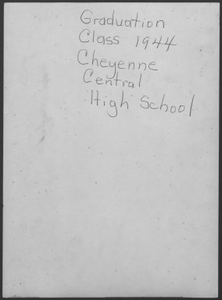 Graduation
Class 1944
Cheyenne
Central
High School